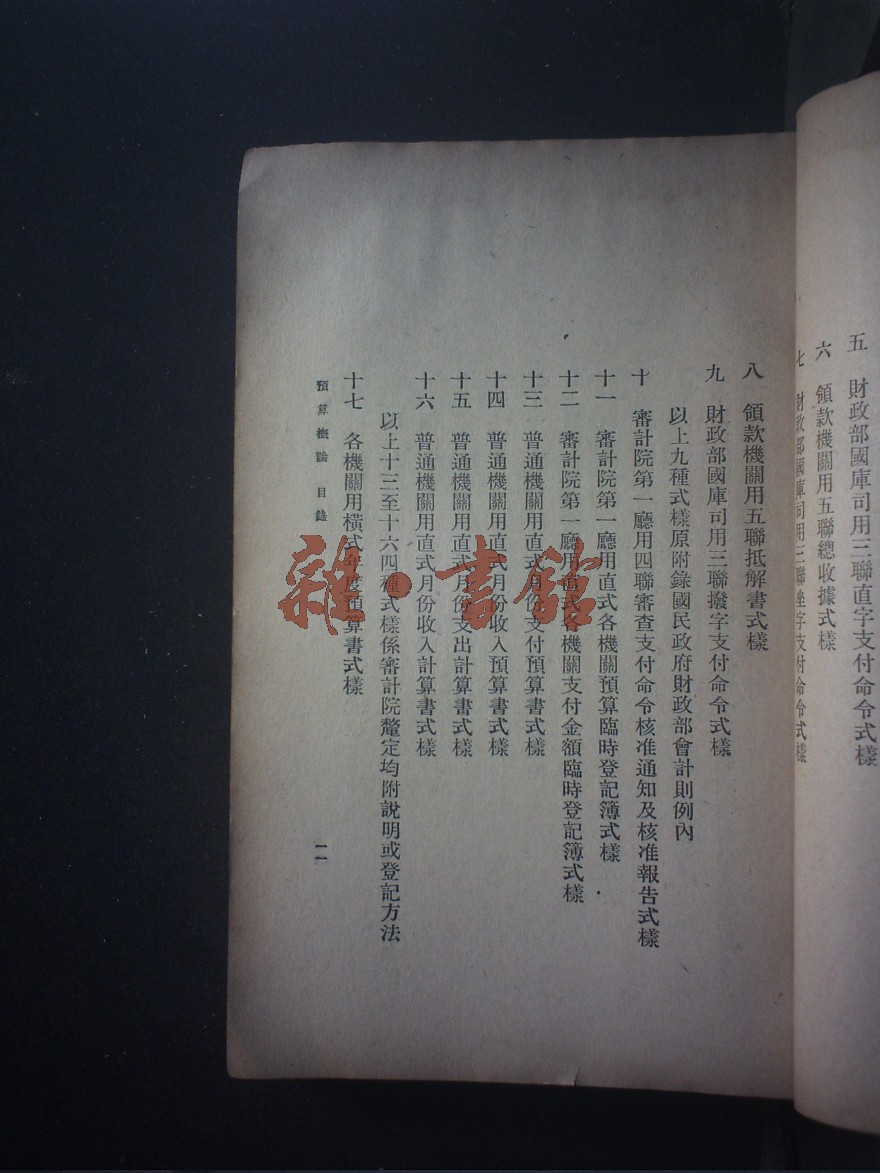 五　財政部國庫司用三聯直字支付命令式樣
六　領款機關用五聯總收據式樣
七　財政部國庫司用三聯坐字支付命令式樣
八　領款機關用五聯抵解書式樣
九　財政部國庫司用三聯撥字支付命令式樣
以上九種式樣原附錄國民政府財政部會計則例內
十　審計院第一廳用四聯審查支付命令核准通知及核准報告式樣
十一　審計院第一廳用直式各機關預算臨時登記簿式樣
十二　審計院第一廳用直式各機關支付金額臨時登記簿式樣
十三　普通機關用直式月份支付預算書式樣
十四　普通機關用直式月份收入預算書式樣
十五　普通機關用直式月份支出計算書式樣
十六　普通機關用直式月份收入計算書式樣
以上十三至十六四種式樣係審計院釐定均附說明或登記方法
十七　各機關用橫式年度預算書式樣
預算概論　目錄
一一
雜·書館